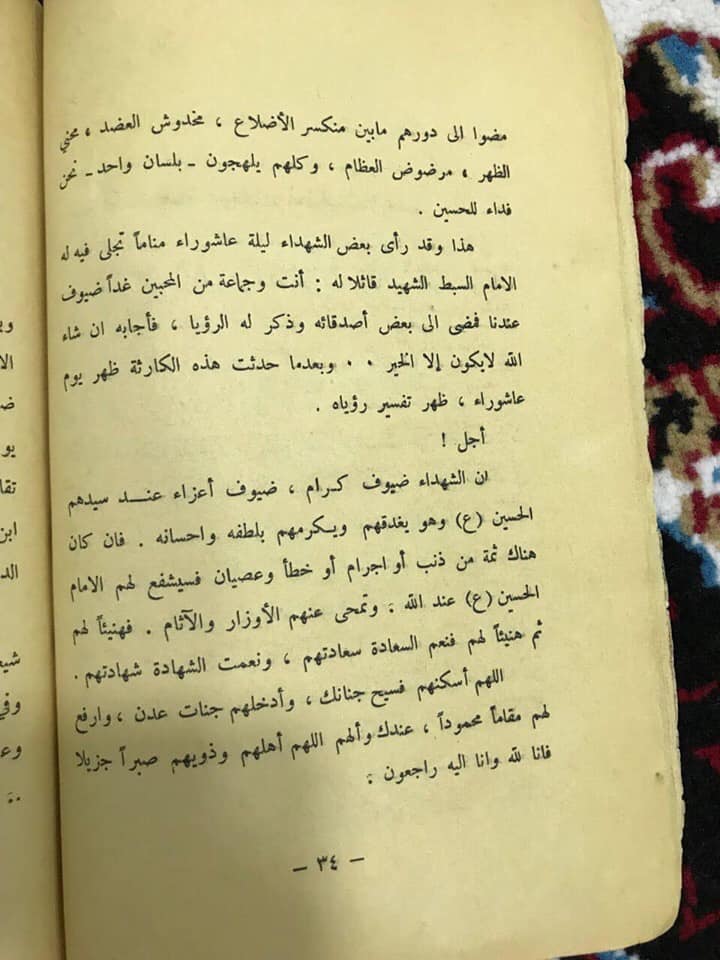 مضوا الى دورهم مابين منكسر الأضلاع ، مخدوش العضد ، محني
الظهر ، مرضوض العظام ، وكلهم يلهجون ـ بلسان واحد ـ نحن
فداء للحسين .
هذا وقد رأى بعض الشهداء ليلة عاشوراء مناماً تجلى فيه له
الامام السبط الشهيد قائلا له : أنت وجماعة من المحبين غداً ضيوف
عندنا فمضى الى بعض أصدقائه وذكر له الرؤيا ، فأجابه ان شاء
الله لايكون إلا الخير . . وبعدما حدثت هذه الكارثة ظهر يوم
عاشوراء ، ظهر تفسير رؤياه .
أجل !
ان الشهداء ضيوف كرام ، ضيوف أعزاء عند سيدهم
الحسين (ع) وهو يغدقهم ويكرمهم بلطفه واحسانه . فان كان
هناك ثمة من ذنب أو اجرام أو خطأ وعصيان فسيشفع لهم الامام
الحسين (ع) عند الله . وتمحى عنهم الأوزار والآثام . فهنيئاً لهم
ثم هنيئاً لهم فنعم السعادة سعادتهم ، ونعمت الشهادة شهادتهم .
اللهم أسكنهم فسيح جنانك ، وأدخلهم جنات عدن ، وارفع
لهم مقاماً محموداً ، عندك وألهم اللهم أهلهم وذويهم صبراً جزيلا
فانا لله وانا اليه راجعون .
ـ ٣٤ ـ